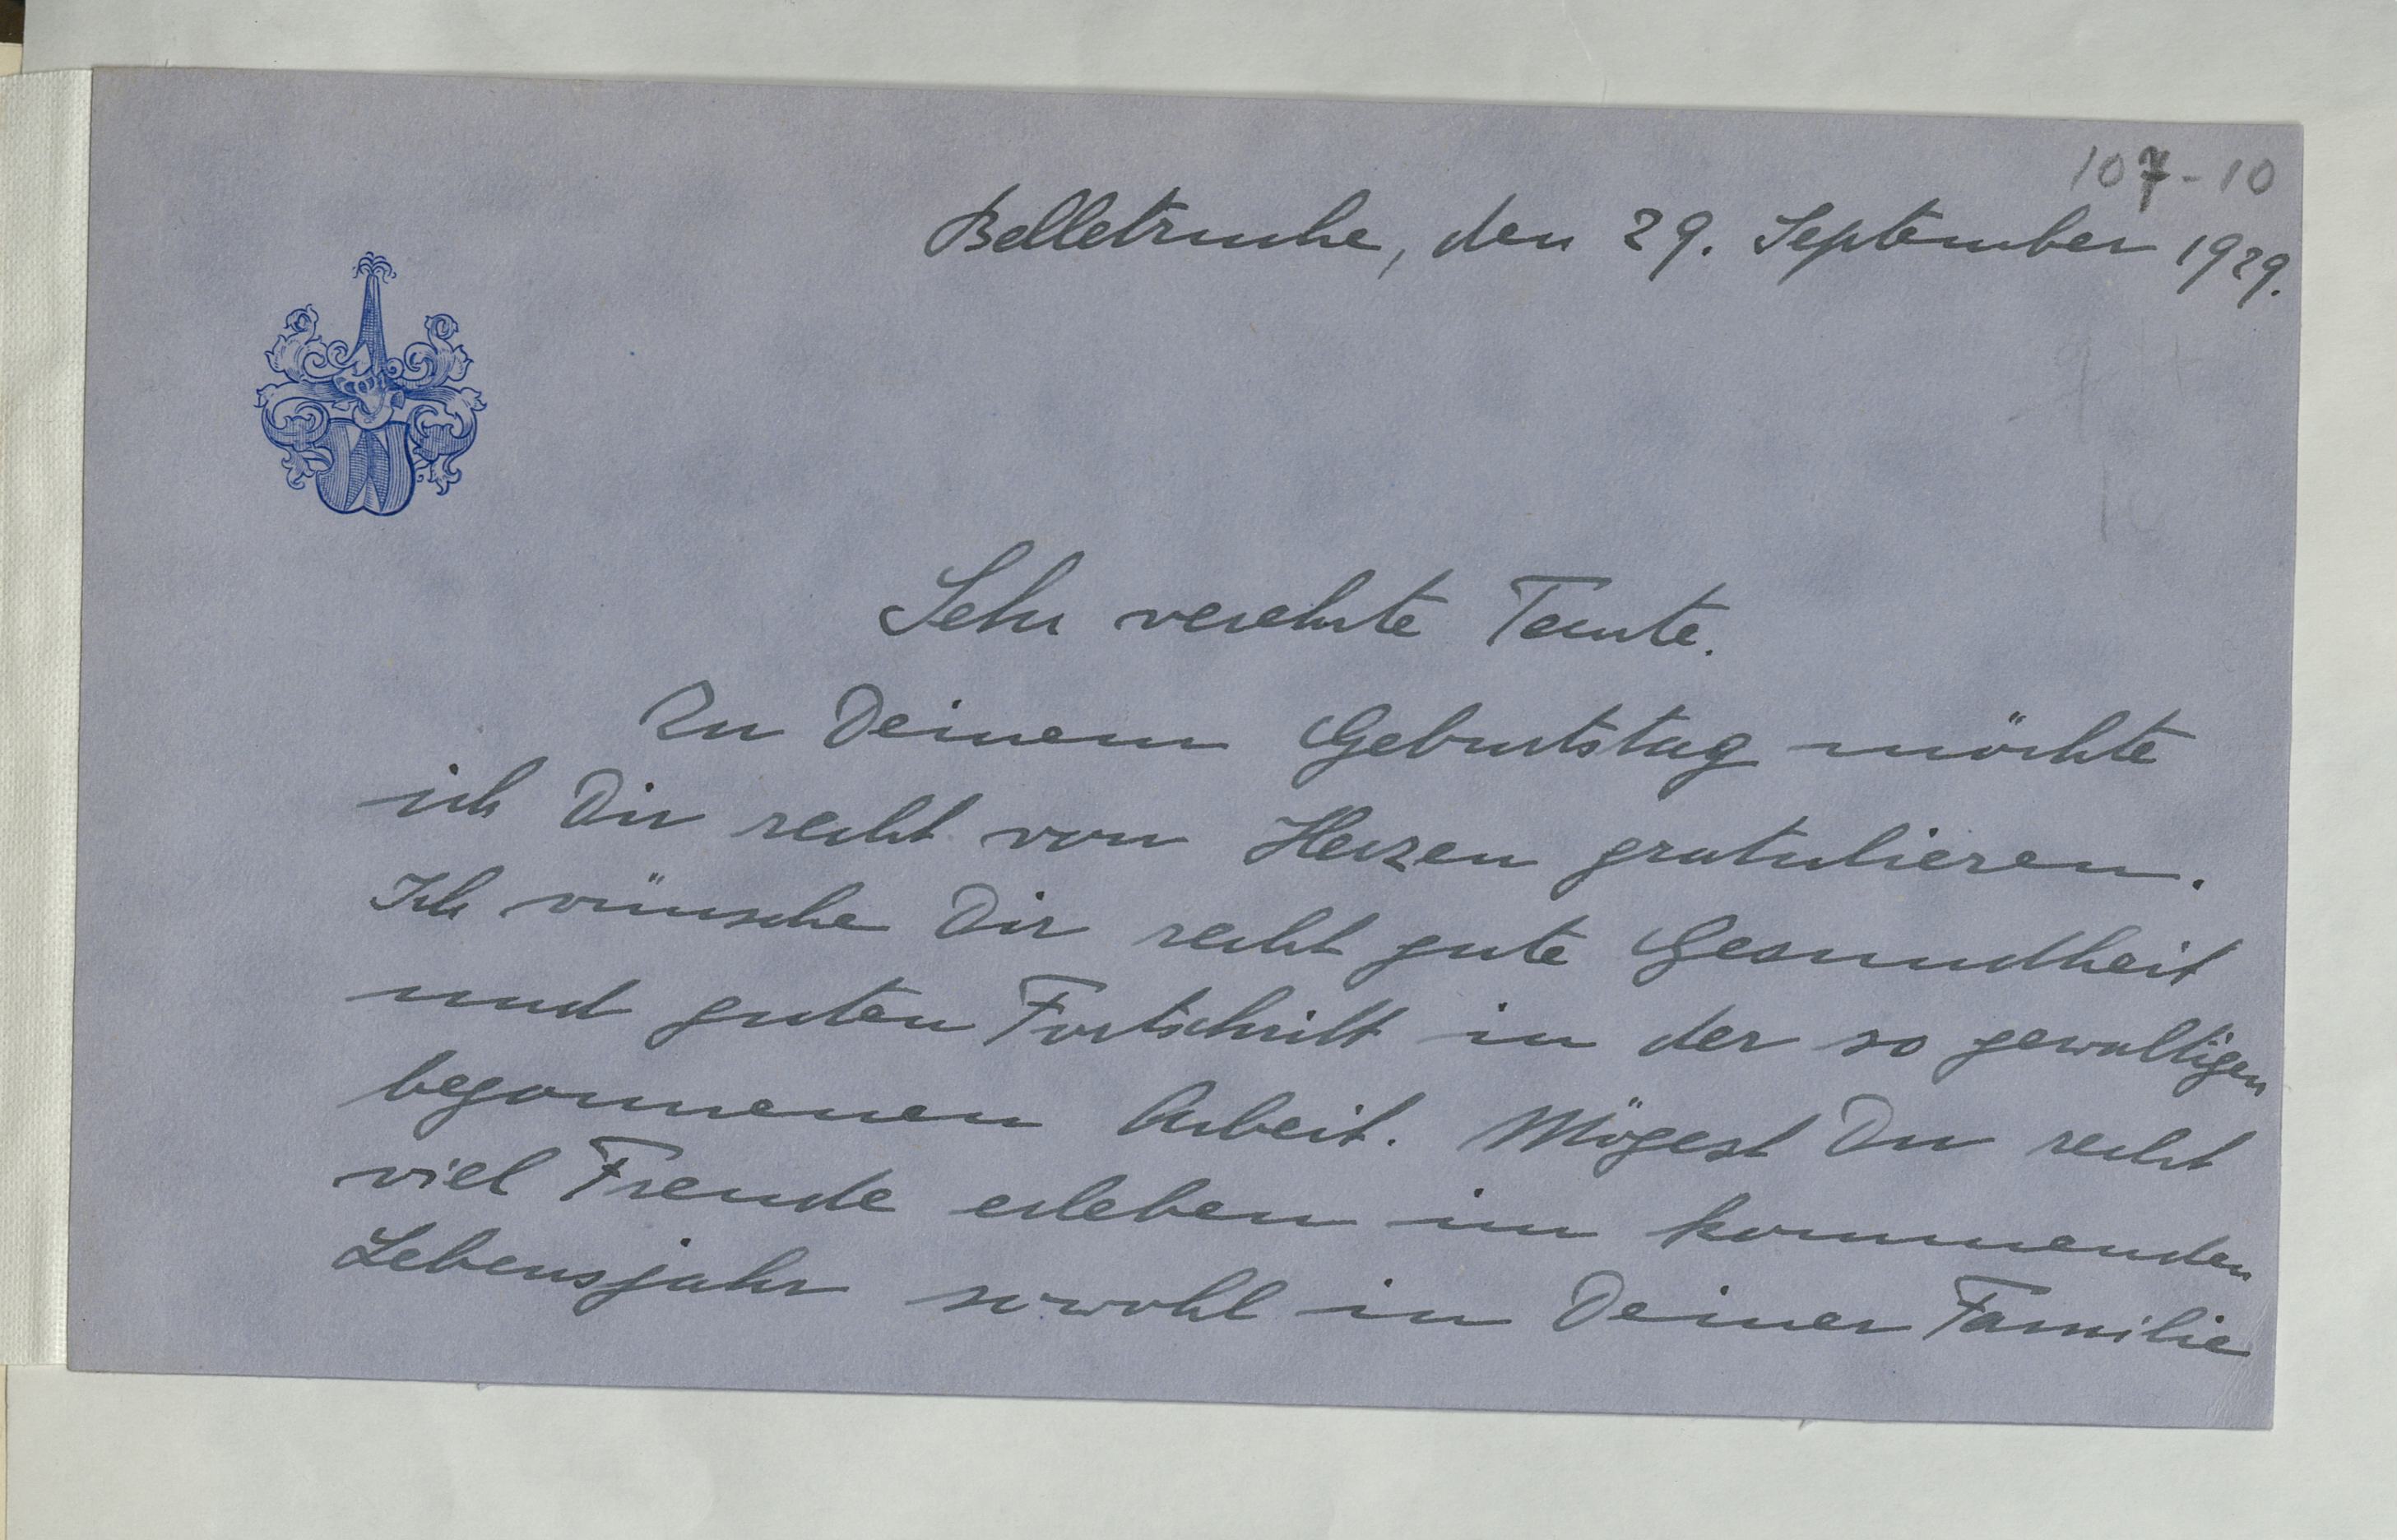 107-10
Belletruche, den 29. September 1929.
Sehr verehrte Tante.
Zu Deinem Geburtstag möchte
ich Dir recht von Herzen gratulieren.
Ich wünsche Dir recht gute Gesundheit
und guten Fortschritt in der so gewaltigen
begonnenen Arbeit. Mögest Du recht
viel Freude erleben im kommenden
Lebensjahr sowohl in Deiner Familie